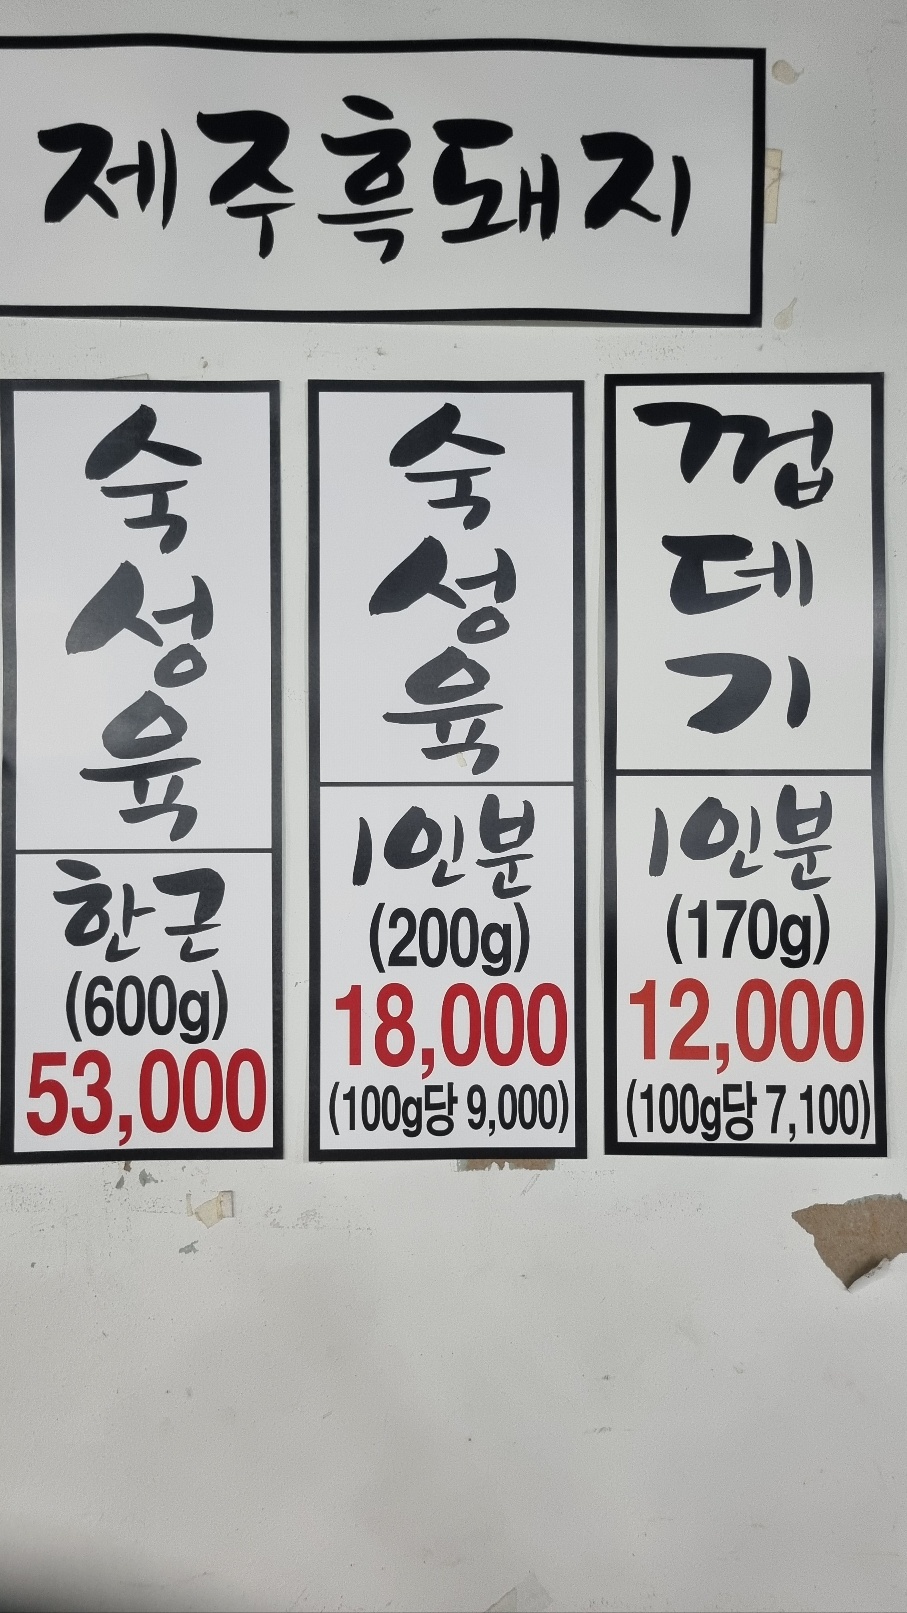 제주흑돼지
숙성육
한근
(600g)
53,000
숙성육
1인분
(200g)
18,000
(100g당 9,000)
껍데기
1인분
(170g)
12,000
(100g당 7,100)